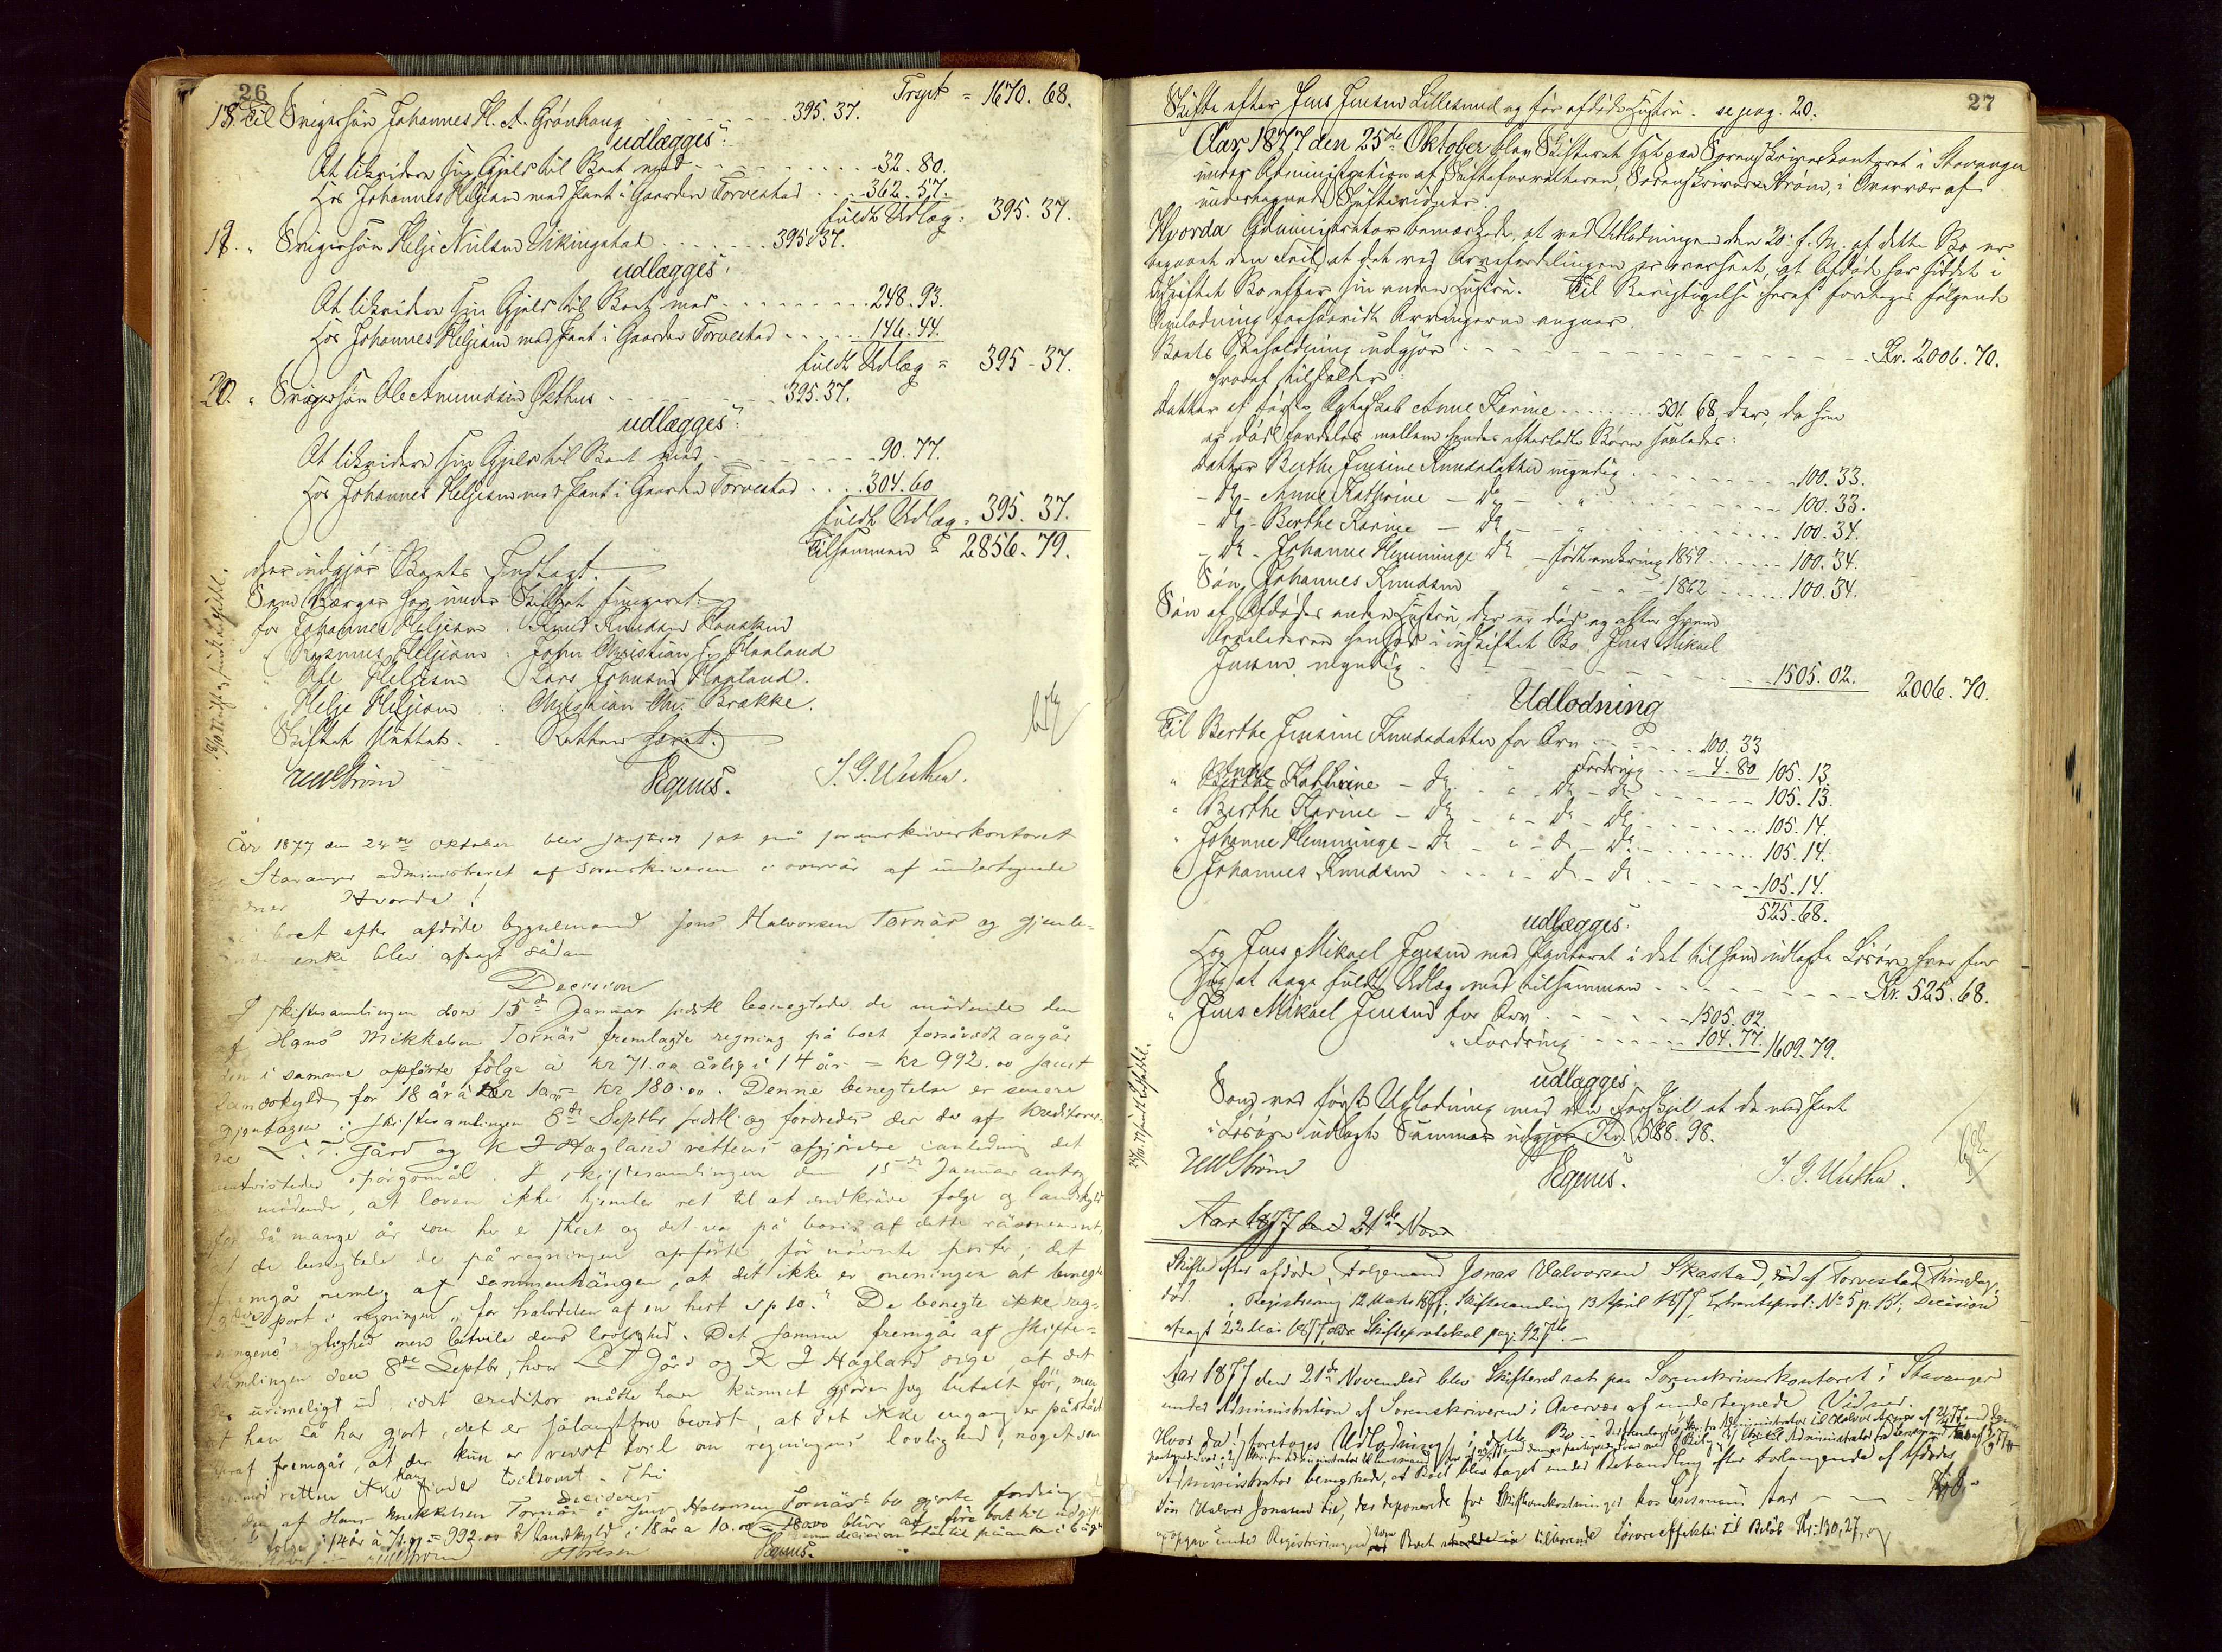 26
Trspt = 1670. 68.
18. Til Svigersøn Johannes H. A. Grønhaug . . . 395. 37.
udlægges:
At likvidere sin Gjeld til Boet med - - - 32. 80.
Hos Johannes Helgesen med Pant i Gaarden Torvestad . . . 362. 57.
fuldt Udlæg = 395. 37.
18. " Svigersøn Helje Nilsen Vikingstad . . . 395. 37.
udlægges:
At likvidere sin Gjeld til Boet med . . . 248. 93.
Hos Johannes Helgesen med Pant i Gaarden Torvestad . . . 146. 44.
fuldt Udlæg = 395 - 37.
20. " Svigersøn Ole Amundsen Østhus . . . 395. 37.
udlægges:
At likvidere sin Gjeld til Boet med . . . 90. 77.
Hos Johannes Helgesen med Pant i Gaarden Torvestad . . . 304. 60
fuldt Udlæg = 395. 37.
Tilsammen = 2856. 79.
der udgjør Boets Indtægt.
Som Værger har under Skiftet fungeret:
for Johannes Heljesen : Knud Knudsen Hausken
" Rasmus Heljesen : John Christian Haaland
" Ole Heljesen : Lars Johnsen Haaland.
" Helje Heljesen : Christian Chr. Brække.
Skiftet sluttet. . Retten hævet.
Strøm Egenæs. T. G. Uchen.
År 1877 den 24de Oktober blev skifteret sat på sorenskriverkontoret
Stavanger administreret af sorenskriveren i overvær af undertegnede
Hvorda!
boet efter afdøde bygselmand Jens Halvorsen Tornæs og gjenle-
enke blev afsagt sådan
Decision
I skiftesamlingen den 15de Januar sidstl. benegtede de mødende den
af Hans Mikkelsen Tornæs fremlagte regning på boet forsåvidt angår
den i samme opførte følge à kr 71.00 årlig i 14 år = kr 992.00 samt
landskyld for 18 år à kr 10.00 = kr 180.00. Denne benegtelse er senere
gjentagen i skiftesamlingen 8de Septbr sidstl. og fordredes der da af kreditorer-
ne L. T. Gård og K J Hagland rettens afgjørelse i anledning det
omtvistede spørgsmål. I skiftesamlingen den 15de Januar antog
mødende, at loven ikke hjemler ret til at indkræve følge og landskyld
for så mange år som her er skeet og det var på basis af dette räsonnement,
at de benegtede de på regningen opførte, før nævnte poster; det
fremgår nemlig af sammenhængen, at det ikke er meningen at benegte
post i regningen "for halvdelen af en hest sp 10." De benegte ikke reg-
ningens rigtighed men betvile dens lovlighed. Det samme fremgår af skifte-
samlingen den 8de Septbr, hvor L T Gård og K J Hagland sige, at det
urimeligt ud, idet creditor måtte have kunnet gjøre sig betalt før, men
at han så har gjort, det er sålangt fra bevist, at det ikke engang er påstået
heraf fremgår, at der kun er reist tvil om regningens lovlighed, noget som
retten ikke kan finde tvilsomt. Thi
decideres
den af Hans Mikkelsen Tornæs i Jens Halvorsen Tornæs's bo gjorte fordring
følge i 14 år à 71.00 = 992.00 & landskyld i 18 år a 10.00 = 180.00 bliver at føre boet til udgift
Strøm Egenæs.
27
Skifte efter Jens Jensen Lillesund og før afdøde Hustru. se pag. 20.
Aar 1877 den 25de Oktober blev Skifteret sat paa Sorenskriverkontoret i Stavanger
under Administration af Skifteforvalteren, Sorenskriver Strøm, i Overvær af
undertegnede Skiftevidner.
Hvorda Administrator bemærkede, at ved Udlodningen den 20. f. M. af dette Bo er
begaaet den Feil, at det ved Arvefordelingen er overseet, at Afdøde har siddet i
uskiftet Bo efter sin anden Hustru. Til Berigtigelse heraf foretages følgende
Omlodning forsaavidt Arvingerne angaar.
Boets Beholdning udgjør - - - Kr. 2006. 70.
hvoraf tilfalder:
Datter af første Ægteskab Anne Karine . . . 501. 68, der, da hun
er død fordeles mellem hendes efterladte Børn saaledes:
Datter Berthe Jensine Knudsdatter myndig . . . 100. 33.
- do - Anne Kathrine - do - " . . . 100. 33.
- do - Berthe Karine - do - " . . . 100. 34.
- do - Johanne Flemminge do - født omkring 1859 . . . 100. 34.
Søn, Johannes Knudsen " - " - 1862 . . . 100. 34.
Søn af Afdødes anden Hustru, der er død og efter hvem
Arveladeren hensad i uskiftet Bo: Jens Mikael
Jensen myndig . . . 1505. 02. 2006. 70.
Udlodning
Til Berthe Jensine Knudsdatter for Arv . . . 100. 33
Fordring . . . 4. 80 105. 13
" Anne Kathrine - do - " do - do . . . 105. 13.
" Berthe Karine - do - " - do - do . . . 105. 14.
" Johanne Flemminge - do - " - do - do . . . 105. 14.
" Johannes Knudsen - - - " - do - do . . . 105. 14.
525. 68.
udlægges:
Hos Jens Mikael Jensen med Panteret i det til ham udlagte Løsøre, hver for
sig at tage fuldt Udlæg med tilsammen - - - Kr. 525. 68.
" Jens Mikael Jensen for Arv . . . 1505. 02.
" Fordring . . . 104. 77. 1609. 79.
udlægges
Som ved første Udlodning med den Forskjel at de med Pant
i Løsøre udlagte Summer udgjør Kr. 588. 98.
Strøm Egenæs. T. G. Uchen.
Aar 1877 den 21de Nov
Skifte efter afdøde Folgemand Jonas Halvorsen Skastad, død af Torvestad Thinglag,
død . Registrering 12 Marts 1877; Skiftesamling 13 April 1877, Extraretsprot: No 5 p. 151; Decision
afsagt 22 Mai 1877, Skifteprotokol pag. 427.
Aar 1877 den 21de November blev Skifteret sat paa Sorenskriverkontoret i Stavanger
under Administration af Sorenskriveren i Overvær af undertegnede Vidner.
Hvor da! foretages Udlodning i dette Bo.
Administrator bemærkede, at Boet blev taget under Behandling efter Forlangende af Afdødes
Søn Halvor Jonassen der deponerede for Skifteomkostninger hos Lensmand Aar - - - Kr 8 -
opgav under Registreringen Boet tilhørende Løsøreeffekter til Beløb Kr: 130,27,